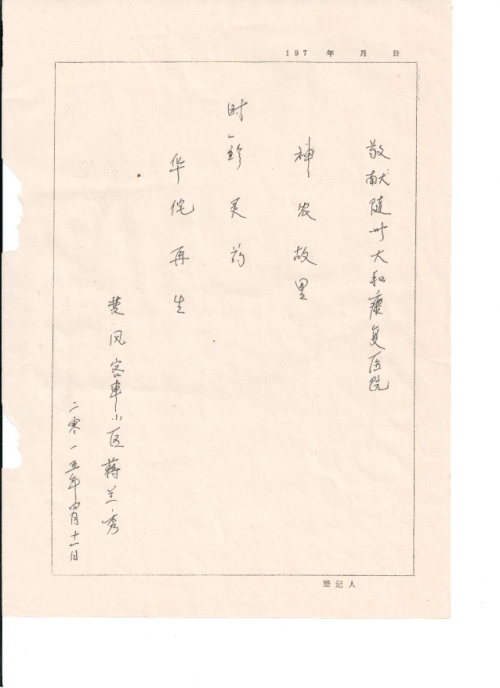 197 年 月 日
敬献随州大和康复医院
神农故里
时珍灵药
华佗再生
楚风客车小区蒋兰秀
二零一五年四月十一日
登记人